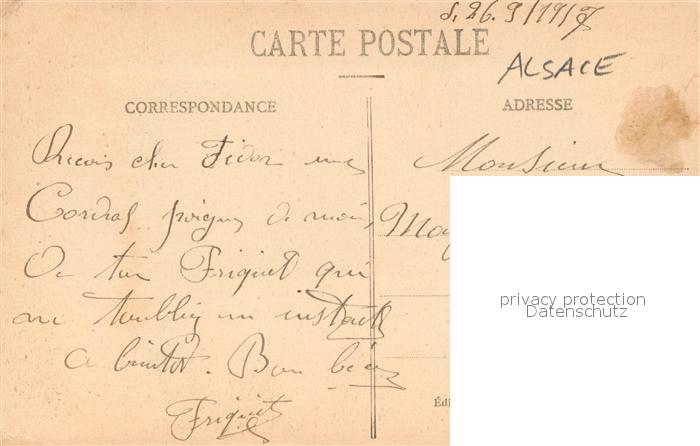 S. 26.9/1917
CARTE POSTALE
ALSACE
CORRESPONDANCE
ADRESSE
Recois cher Fidor une
Cordial poignee de main,
De ton Friquet qui
ne toublie un instant
a bientot. Bon
Friquet
Monsieur
May
privacy protection
Datenschutz
Édi